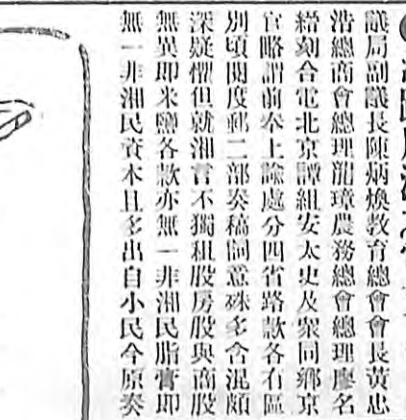 議局副議長陳炳煥敎育總會會長黃忠
浩總商會總理龍璋農務總會總理廖名
縉刻合電北京譚組安太史及衆同鄉京
官略謂前奉上諭處分四省路款各有區
別頃閱度郵二部奏稿詞意殊多含混頗
深疑懼但就湘言不獨租股房股與商股
無異即米鹽各款亦無一非湘民脂膏即
無一非湘民資本且多出自小民今原奏